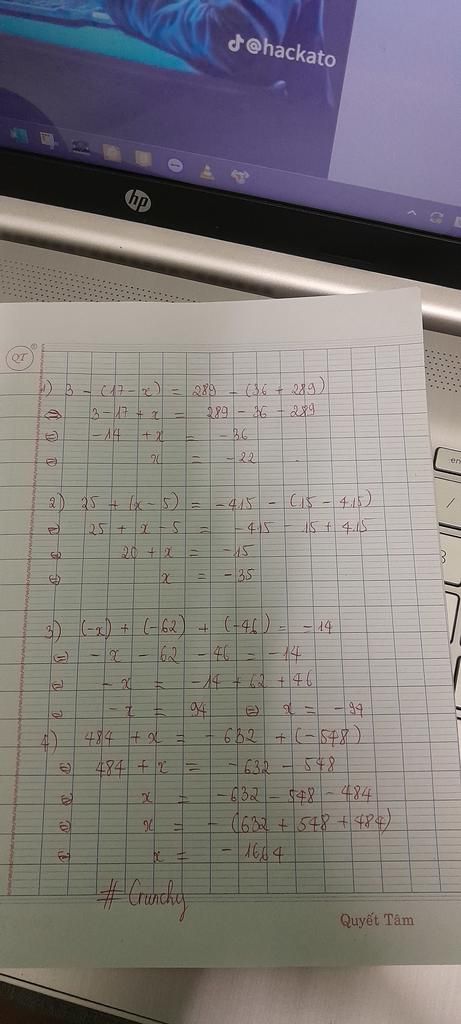 @hackato
hp
QT
1) 3 - (17 - x) = 289 - (36 + 289)
⇔ 3 - 17 + x = 289 - 36 - 289
⇔ -14 + x = -36
⇔ x = -22
2) 25 + (x - 5) = -415 - (15 - 415)
⇔ 25 + x - 5 = -415 - 15 + 415
⇔ 20 + x = -15
⇔ x = -35
3) (-x) + (-62) + (-46) = -14
⇔ -x - 62 - 46 = -14
⇔ -x = -14 + 62 + 46
⇔ -x = 94 ⇔ x = -94
4) 484 + x = -632 + (-548)
⇔ 484 + x = -632 - 548
⇔ x = -632 - 548 - 484
⇔ x = -(632 + 548 + 484)
⇔ x = -1664
# Crunchy
Quyết Tâm